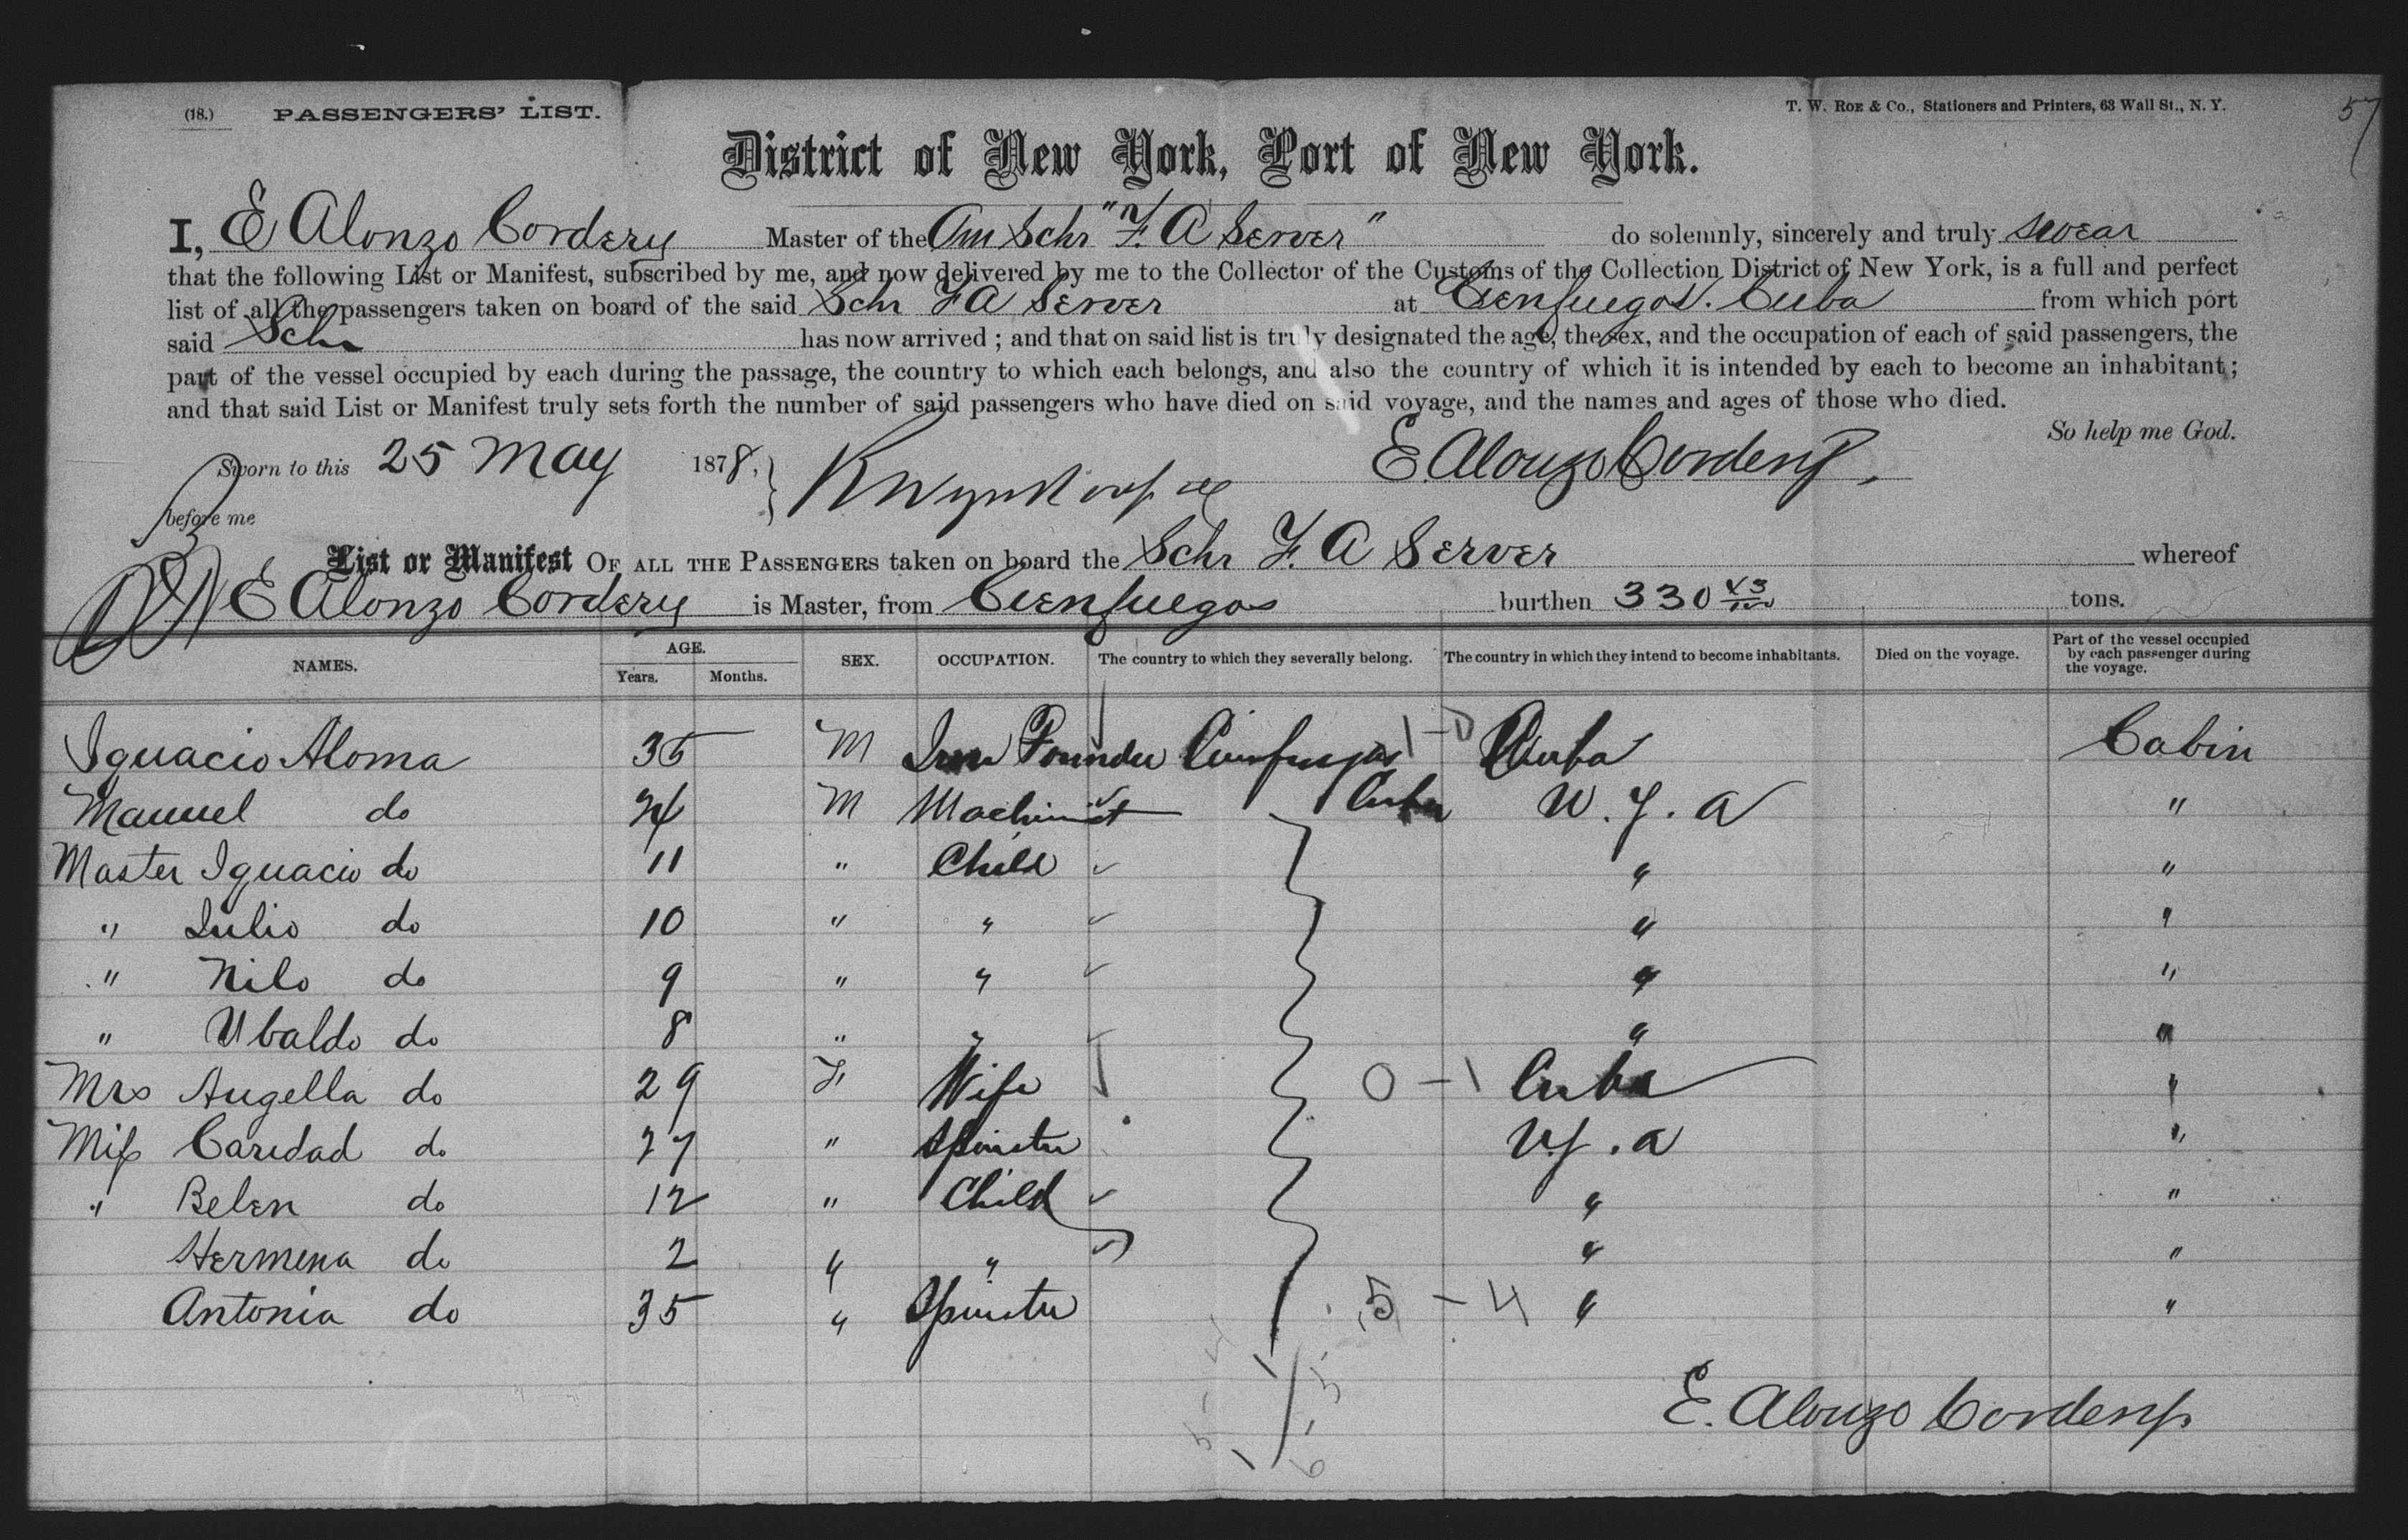 (18.) PASSENGERS' LIST. T. W. ROE & Co., Stationers and Printers, 63 Wall St., N. Y. 57
District of New York, Port of New York.
I, E Alonzo Cordery Master of the Am Schr "F. A Server" do solemnly, sincerely and truly swear
that the following List or Manifest, subscribed by me, and now delivered by me to the Collector of the Customs of the Collection District of New York, is a full and perfect
list of all the passengers taken on board of the said Schr F A Server at Cienfuegos. Cuba from which port
said Schr has now arrived ; and that on said list is truly designated the age, the sex, and the occupation of each of said passengers, the
part of the vessel occupied by each during the passage, the country to which each belongs, and also the country of which it is intended by each to become an inhabitant ;
and that said List or Manifest truly sets forth the number of said passengers who have died on said voyage, and the names and ages of those who died.
So help me God.
Sworn to this 25 May 1878, E. Alonzo Cordery
before me
List or Manifest OF ALL THE PASSENGERS taken on board the Schr F. A Server whereof
E Alonzo Cordery is Master, from Cienfuegos burthen 330 43/100 tons.
NAMES. AGE. Years. Months. SEX. OCCUPATION. The country to which they severally belong. The country in which they intend to become inhabitants. Died on the voyage. Part of the vessel occupied by each passenger during the voyage.
Ignacio Aloma 35 M Iron Founder Cienfuegos 1-0 Cuba Cabin
Manuel do 24 M Machinist Cuba U. S. A "
Master Ignacio do 11 " Child " "
" Julio do 10 " " " "
" Nilo do 9 " " " "
" Ubaldo do 8 " " " "
Mrs Angella do 29 F Wife 0-1 Cuba "
Miss Caridad do 27 " Spinster U.S.A "
" Belen do 12 " Child " "
Hermena do 2 " " " "
Antonia do 35 " Spinster 5-4 " "
E. Alonzo Cordery